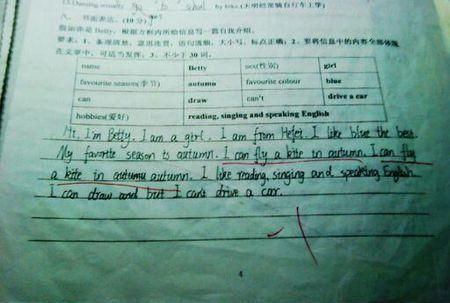 13.Daming usually go to school by bike.(大明经常骑自行车上学)
八、书面表达。(10分)
假如你是 Betty, 根据方框内所给信息写一篇自我介绍。
要求：1、条理清晰, 意思连贯, 语句通顺, 大小写、标点正确；2、要将信息中的内容全部体现
在文章中, 可适当发挥；3、不少于 30词。
name Betty sex(性别) girl
favourite season(季节) autumn favourite colour blue
can draw can't drive a car
hobbies(爱好) reading, singing and speaking English
Hi, I'm Betty. I am a girl. I am from Hefei. I like blue the best.
My favorite season is autumn. I can fly a kite in autumn. I can fly
a kite in autumu autumn. I like reading, singing and speaking English.
I can draw and but I can't drive a car.
4